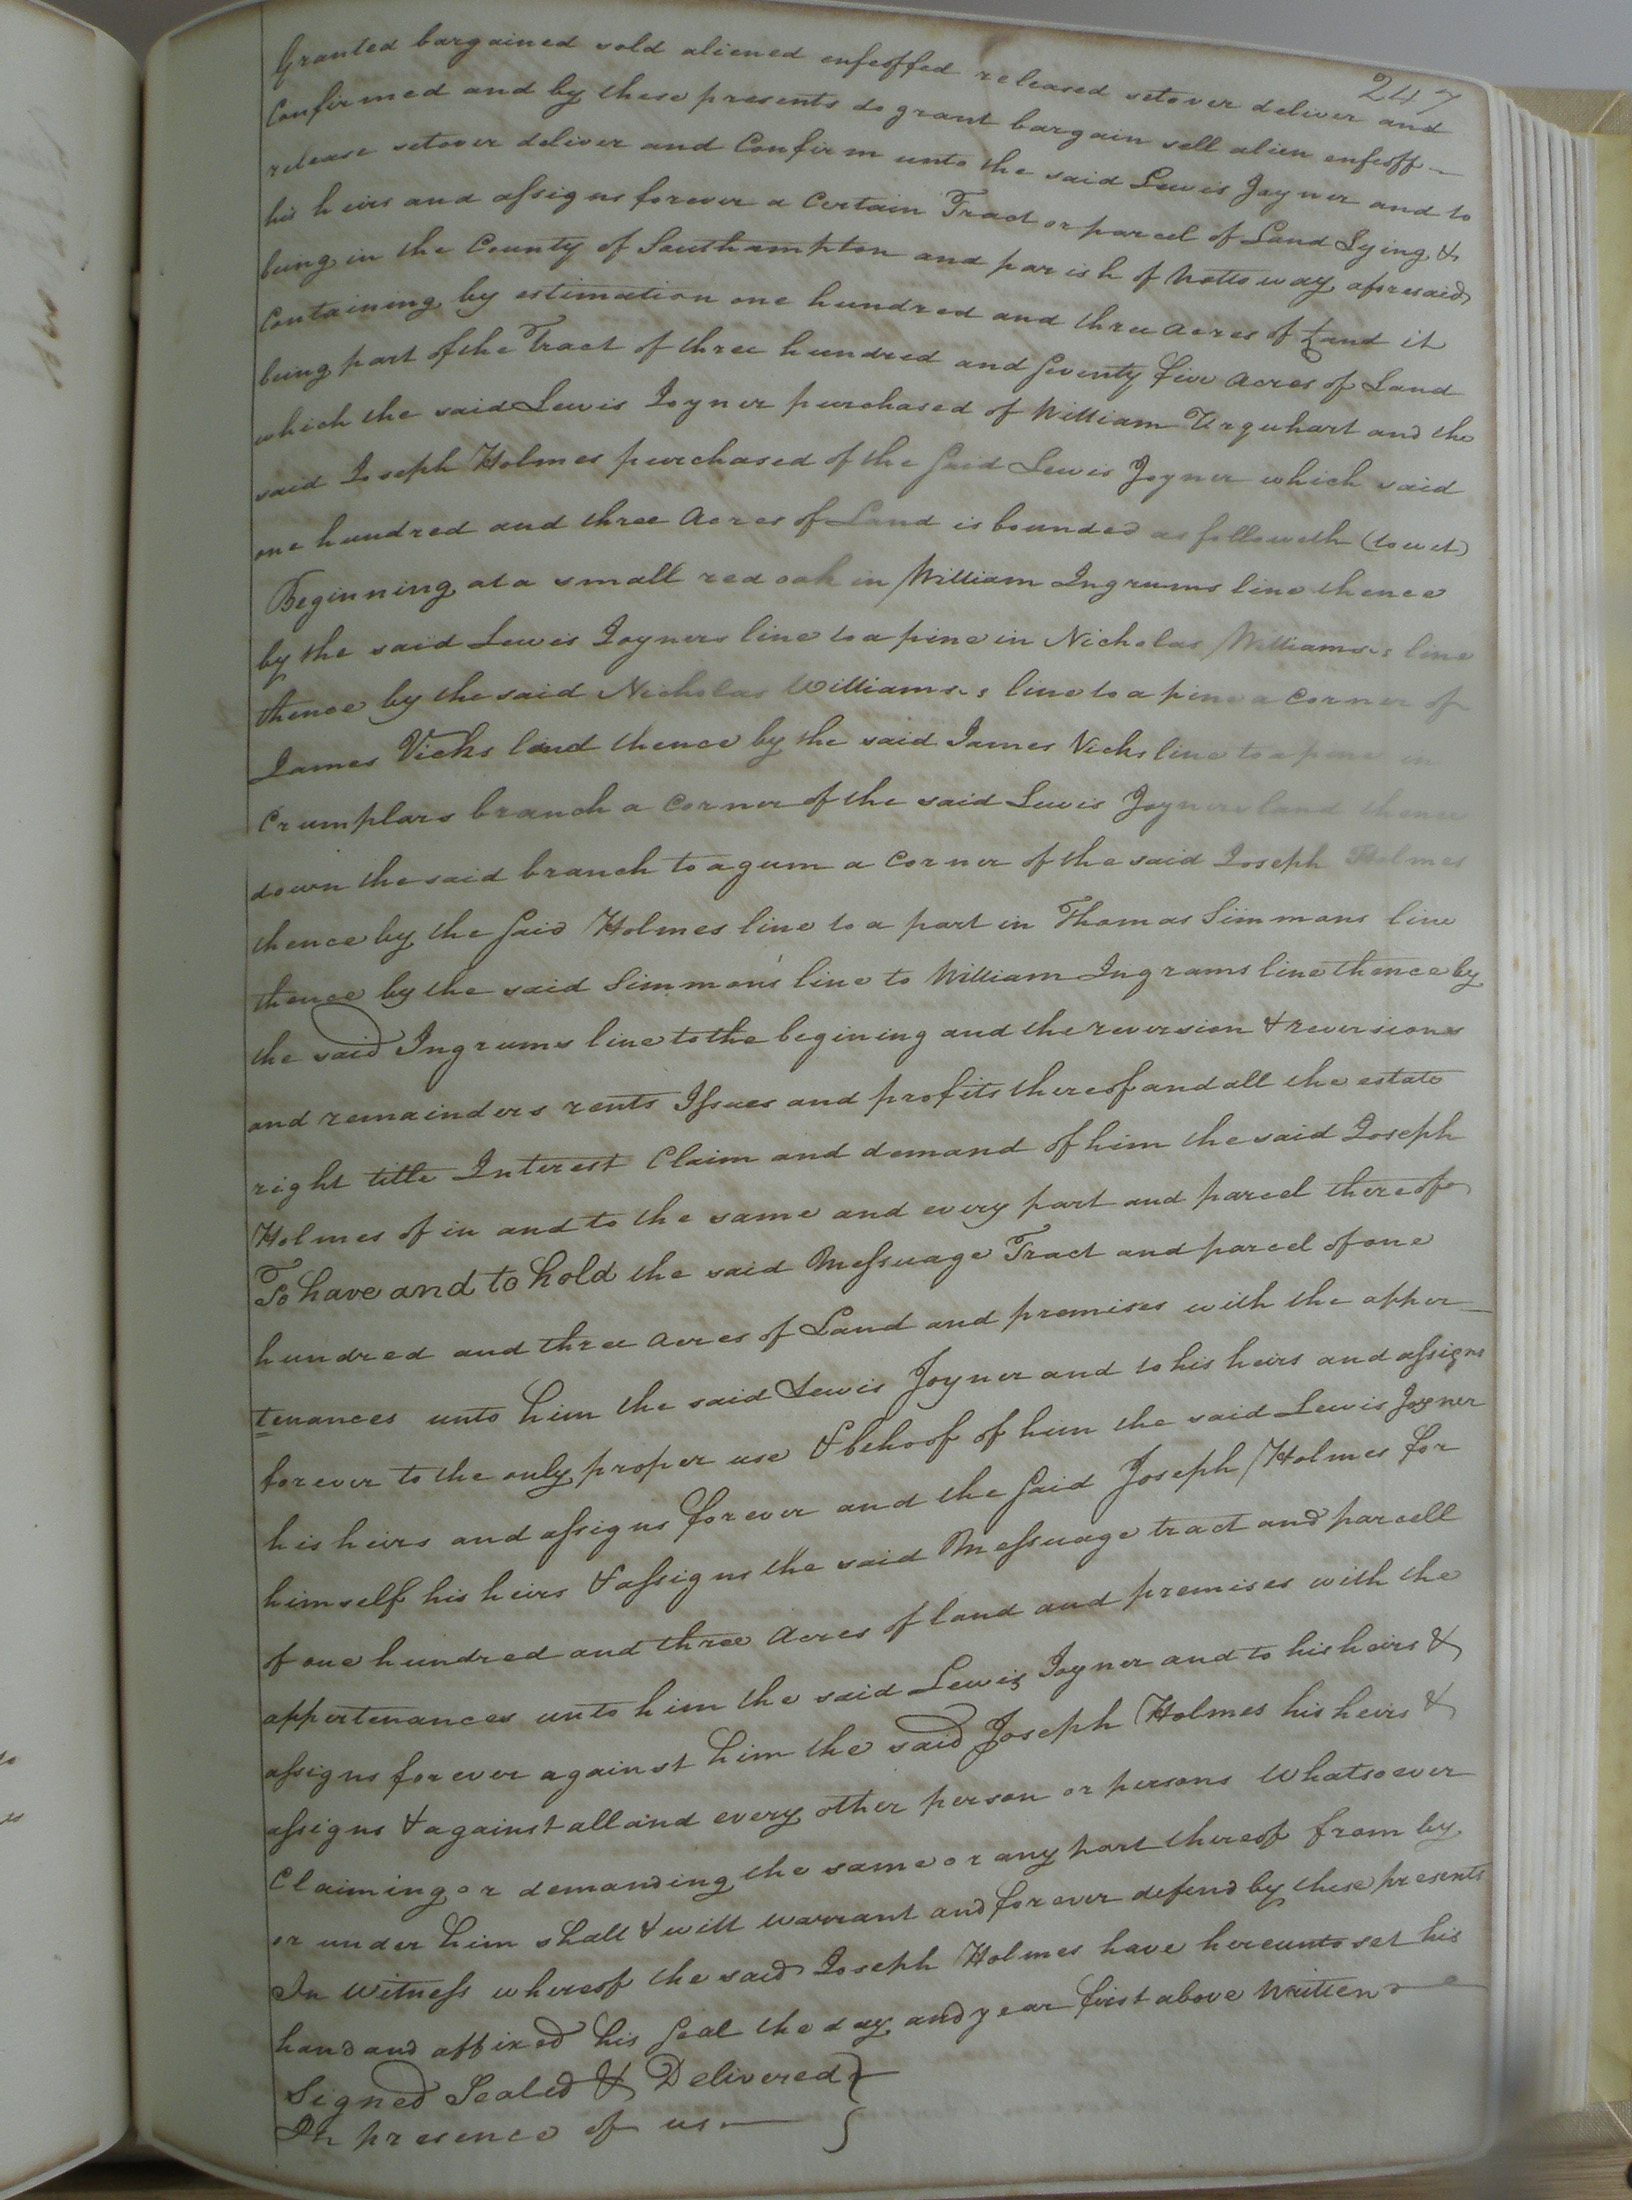 247
Granted bargained sold aliened enfeoffed released setover deliver and
Confirmed and by these presents do grant bargain sell alien enfeoff
release setover deliver and Confirm unto the said Lewis Joyner and to
his heirs and assigns forever a Certain Tract or parcel of Land Lying &
being in the County of Southampton and parish of Nottoway aforesaid
Containing by estimation one hundred and three acres of Land it
being part of the Tract of three hundred and Seventy five acres of Land
which the said Lewis Joyner purchased of William Urquhart and the
said Joseph Holmes purchased of the Said Lewis Joyner which said
one hundred and three acres of Land is bounded as followeth (towit)
Beginning at a small red oak in William Ingrums line thence
by the said Lewis Joyners line to a pine in Nicholas Williamses line
thence by the said Nicholas Williamses line to a pine a corner of
James Vicks land thence by the said James Vicks line to a pine in
Crumplars branch a corner of the said Lewis Joyners land thence
down the said branch to a gum a corner of the said Joseph Holmes
thence by the Said Holmes line to a part in Thomas Simmons line
thence by the said Simmon's line to William Ingrams line thence by
the said Ingrums line to the begining and the reversion & reversions
and remainders rents Issues and profits thereof and all the estate
right title Interest Claim and demand of him the said Joseph
Holmes of in and to the same and every part and parcel thereof
To have and to hold the said Messuage Tract and parcel of one
hundred and three acres of Land and premises with the apper
tenances unto him the said Lewis Joyner and to his heirs and assigns
forever to the only proper use & behoof of him the said Lewis Joyner
his heirs and assigns forever and the Said Joseph Holmes for
himself his heirs & assigns the said Messuage tract and parcell
of one hundred and three acres of land and premises with the
appertenances unto him the said Lewis Joyner and to his heirs &
assigns forever against him the said Joseph Holmes his heirs &
assigns & against all and every other person or persons whatsoever
Claiming or demanding the same or any part thereof from by
or under him shall & will warrant and forever defend by these presents
In Witness whereof the said Joseph Holmes have hereunto set his
hand and affixed his Seal the day and year first above Written
Signed Sealed & Delivered
In presence of us